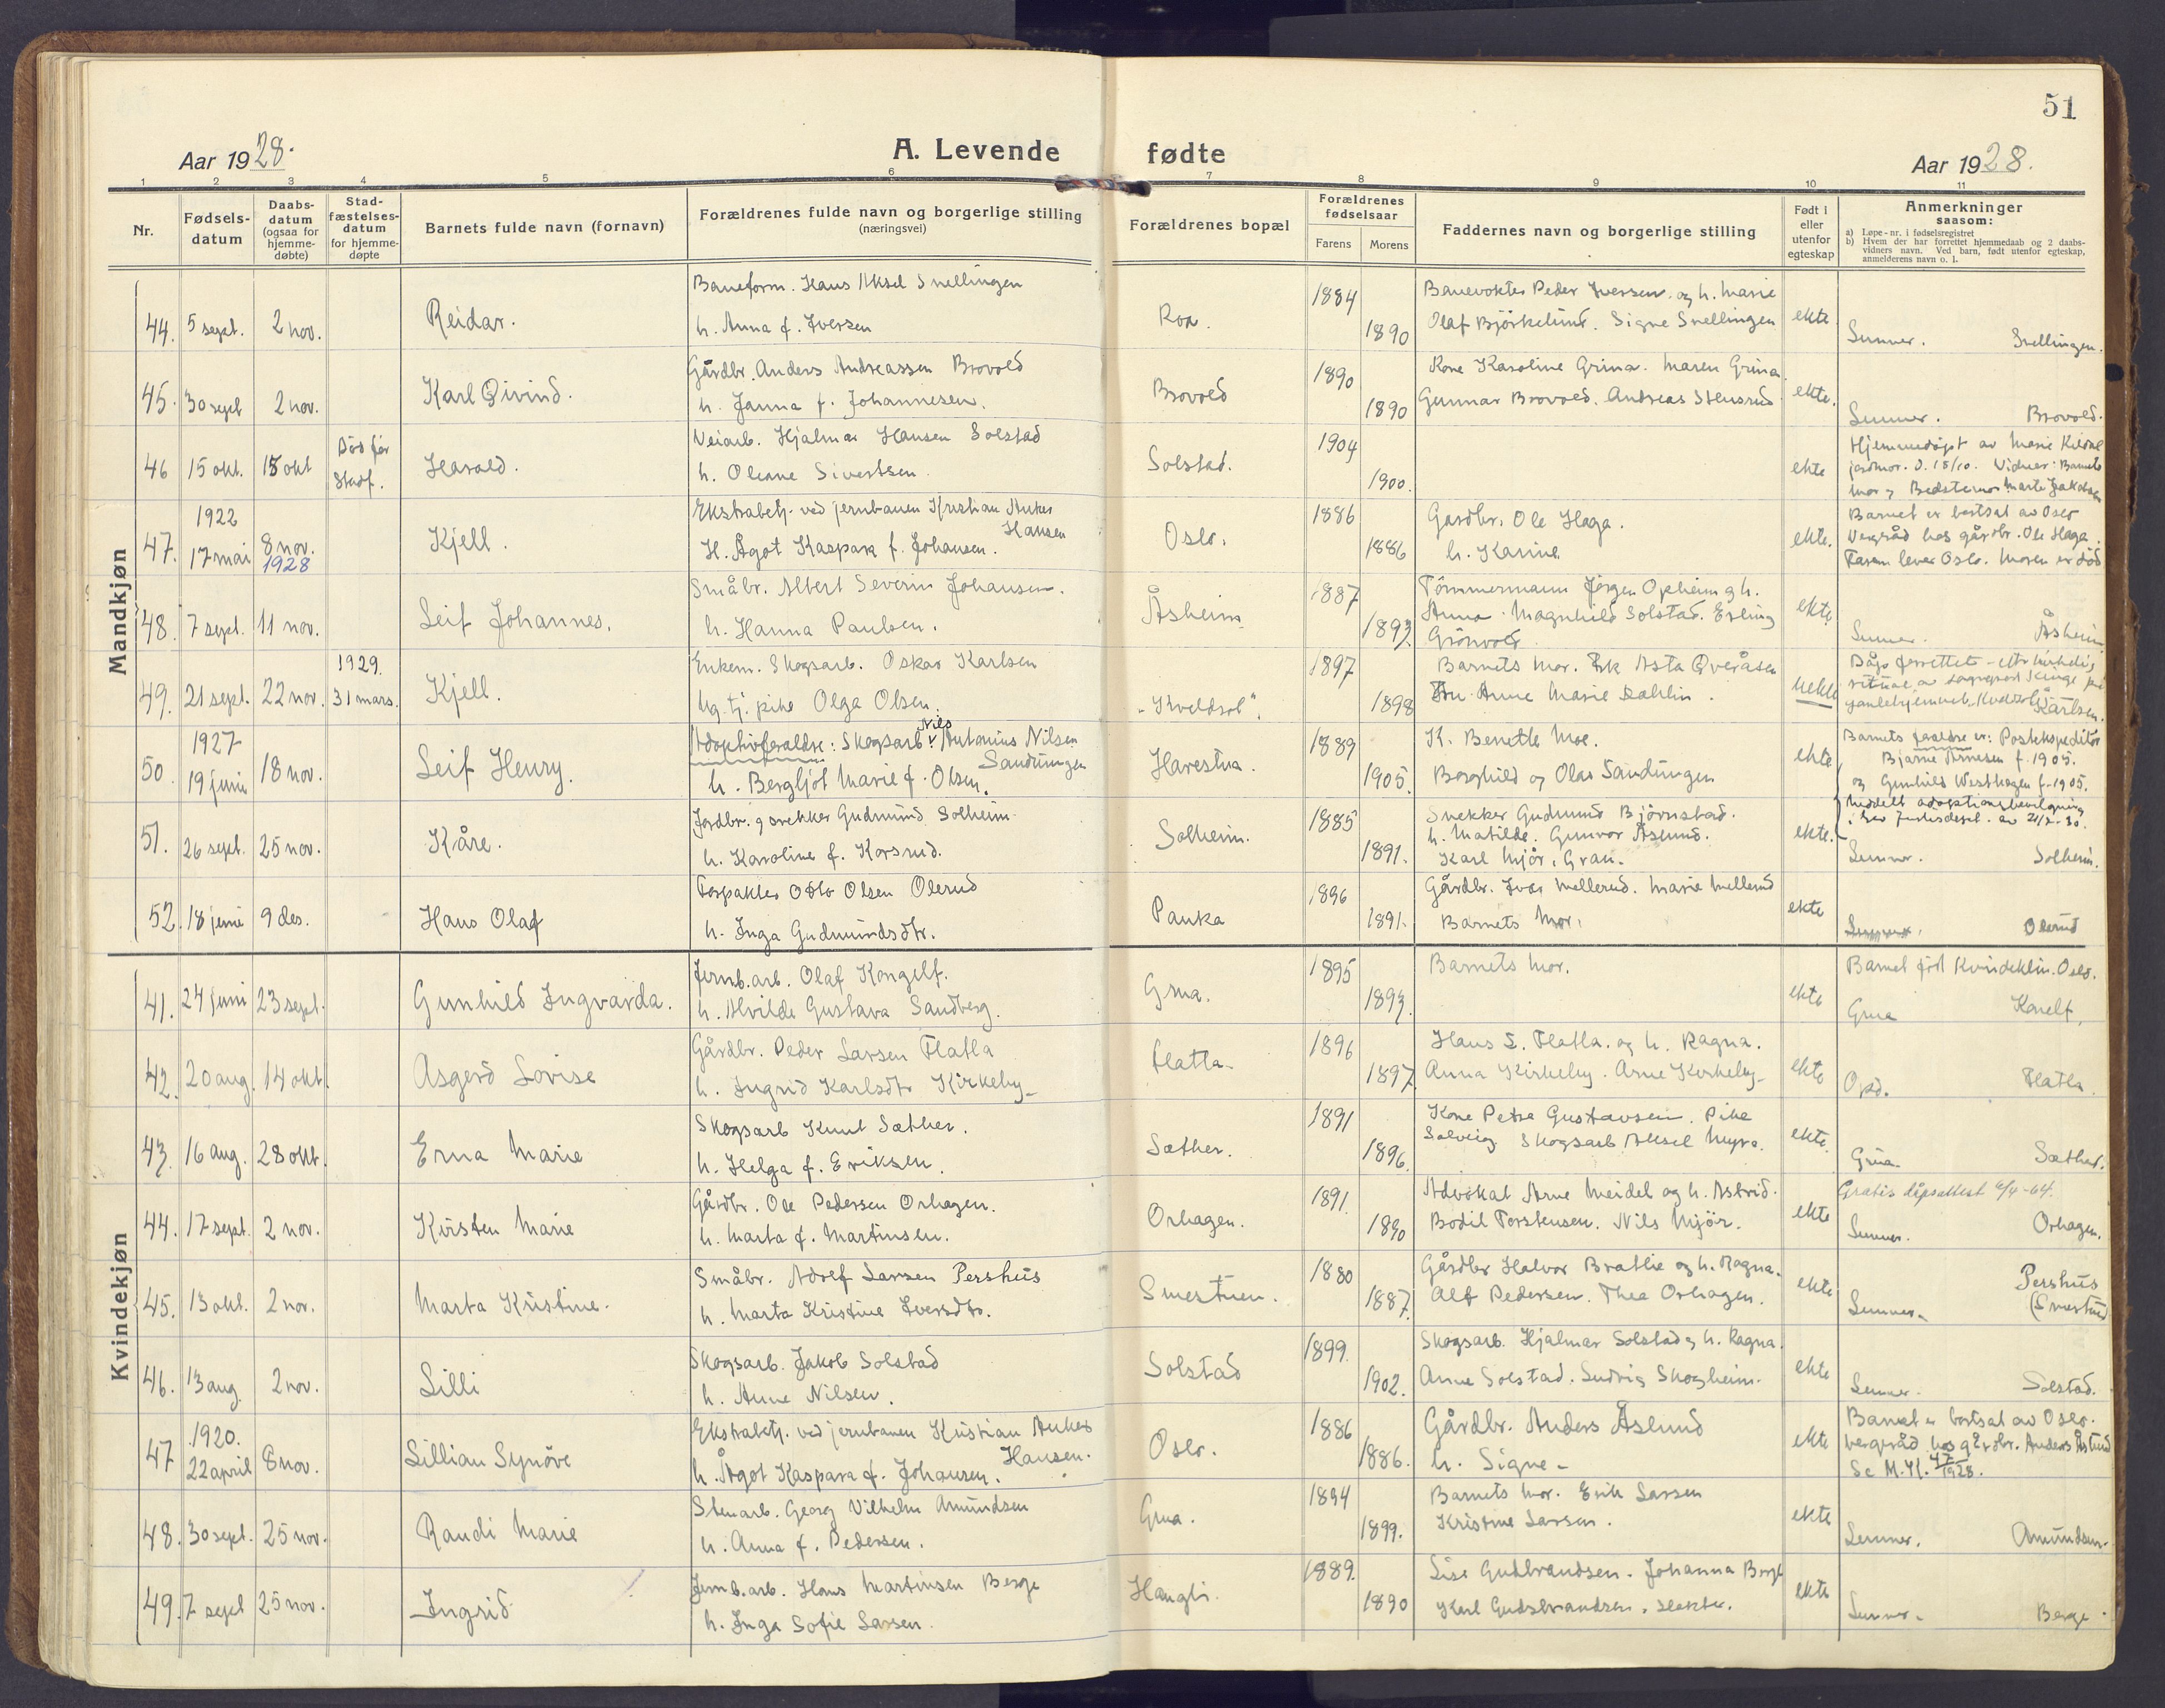 51
Aar 1928.
A. Levende fødte
Aar 1928.
1 2 3 4 5 6 7 8 9 10 11
Nr.
Fødsels-
datum
Daabs-
datum
(ogsaa for
hjemme-
døbte)
Stad-
fæstelses-
datum
for hjemme-
døpte
Barnets fulde navn (fornavn)
Forældrenes fulde navn og borgerlige stilling
(næringsvei)
Forældrenes bopæl
Forældrenes
fødselsaar
Farens Morens
Faddernes navn og borgerlige stilling
Født i
eller
utenfor
egteskap
Anmerkninger
saasom:
a) Løpe-nr. i fødselsregistret
b) Hvem der har forrettet hjemmedaab og 2 daabs-
vidners navn. Ved barn, født utenfor egteskap,
anmelderens navn o. l.
Mandkjøn
44. 5 sept. 2 nov. Reidar.
Baneform. Hans Aksel Snellingen
h. Anna f. Iversen
Roa. 1884 1890
Banevokter Peder Iversen og h. Marie
Olaf Björkelund. Signe Snellingen
ekte
Lunner. Snellingen.
45. 30 sept 2 nov. Karl Øivind.
Gårdbr. Anders Andreassen Brovold
h. Janna f. Johannesen.
Brovold 1890 1890
Kone Karoline Grina. Maren Grina.
Gunnar Brovold. Andreas Stensrud
ekte.
Lunner. Brovold.
46 15 okt. 15 okt Död för
Stadf.
Harald.
Veiarb. Hjalmar Hansen Solstad
h. Oleane Sivertsen.
Solstad. 1904 1900.
ekte
Hjemmedöpt av Marie
jordmor. d. 15/10. Vidner: Barnets
mor og Bedstemor Marte Jakobsen
47. 1922
17 mai 8 nov.
1928
Kjell.
Ekstrabetj. ved jernbanen Kristian Anker
Hansen
H. Ågot Kaspara f. Johansen.
Oslo. 1886 1886
Gardbr. Ole Haga.
h. Karine
ekte.
Barnet er bortsat av Oslo
Vergeråd hos gårdbr. Ole Haga.
Faren lever Oslo. Moren er död
48. 7 sept. 11 nov. Leif Johannes.
Småbr. Albert Severin Johansen.
h. Hanna Paulsen.
Åsheim 1887 1893.
Tömmermann Jörgen Opheim og h.
Anna. Magnhild Solstad. Erling
Grönvold
ekte
Lunner. Åsheim
49. 21 sept. 22 nov. 1929.
31 mars.
Kjell.
Enkem. Skogsarb. Oskar Karlsen
Ug. tj. pike Olga Olsen.
"Kveldsol". 1897 1898
Barnets mor. Frk Asta Qveråsen
Fru Anne Marie Dæhlin.
uekte
Karlsen.
50. 1927
19 juni 18 nov. Leif Henry.
Adoptivforældre: Skogsarb. Nils Antonius Nilsen
Sandungen
h. Bergljot Marie f. Olsen.
Harestua. 1889 1905.
K. Benette Moe.
Borghild og Olav Sandungen
ekte
Barnets foreldre er: Postekspeditör
Bjarne Arnesen f. 1905.
og Gunhild Westhagen f. 1905.
Meddelt adoptionsbevilgning
51. 26 sept. 25 nov. Kåre.
Jordbr. og snekker Gudmund Solheim.
h. Karoline f. Korsrud.
Solheim. 1885 1891.
Snekker Gudmund Björnstad.
h. Matilde. Gunvor Åslund.
Karl Mjör, Gran.
ekte.
Lunner. Solheim.
52. 18 juni 9 des. Hans Olaf
Forpakter Otto Olsen Olerud
h. Inga Gudmundsdtr.
Pauka 1896 1891.
Gårdbr. Ivar Mellerud. Marie Mellerud
Barnets Mor.
ekte
Olerud
Kvindekjøn
41. 24 juni 23 sept. Gunhild Ingvarda.
Jernb.arb. Olaf Kongelf.
h. Alvilde Gustava Sandberg.
Grua. 1895 1893.
Barnets Mor.
ekte
Barnet född Kvindeklin. Oslo.
Grua
42. 20 aug. 14 okt. Asgerd Lovise
Gårdbr. Peder Larsen Flatla
h. Ingrid Karlsdtr Kirkeby
Flatla. 1896 1897
Hans L. Flatla. og h. Ragna.
Anna Kirkeby. Arne Kirkeby
ekte
Opd. Flatla.
43. 16 aug. 28 okt. Erna Marie
Skogsarb Knut Sæther.
h. Helga f. Eriksen.
Sæther. 1891 1896.
Kone Petra Gustavsen. Pike
Solveig Skogsarb Aksel Myra.
ekte
Grua. Sæther.
44. 17 sept. 2 nov. Kirsten Marie
Gårdbr. Ole Pedersen Orhagen.
h. Marta f. Martinsen.
Orhagen. 1891. 1890
Advokat Arne Meidel og h. Astrid.
Bodil Torstensen. Nils Mjör.
ekte
Gratis dåpsattest 6/4-64.
Lunner. Orhagen.
45. 13 okt. 2 nov. Marta Kristine.
Småbr. Adolf Larsen Pershus
h. Marta Kristine Iversdtr.
Smestuen. 1880 1887.
Gårdbr Halvor Bratlie og h. Ragna.
Alf Pedersen. Thea Orhagen.
ekte
Lunner. Pershus
(Smestuen
46. 13 aug. 2 nov. Lilli
Skogsarb. Jakob Solstad
h. Anne Nilsen.
Solstad 1899. 1902.
Skogsarb. Hjalmar Solstad og h. Ragna.
Anne Solstad. Ludvig Skogheim.
ekte
Lunner. Solstad.
47 1920.
22 april 8 nov. Lillian Synöve
Ekstrabetj. ved jernbanen Kristian Anker
Hansen.
h. Ågot Kaspara f. Johansen.
Oslo. 1886 1886.
Gårdbr. Anders Åslund
h. Signe
ekte
Barnet er bortsat av Oslo.
vergeråd hos gårdbr. Anders Åslund
Se M.Kj. 47/1928.
48. 30 sept. 25 nov. Randi Marie
Stenarb. Georg Vilhelm Amundsen
h. Anna f. Pedersen.
Grua. 1894 1899.
Barnets Mor. Erik Larsen
Kristine Larsen.
ekte
Lunner. Amundsen.
49. 7 sept 25 nov. Ingrid
Jernb.arb. Hans Martinsen Berge
h. Inga Sofie Larsen.
Haugli. 1889. 1890
Lise Gudbrandsen. Johanna Berge
Karl Gudbrandsen,
ekte
Lunner. Berge.